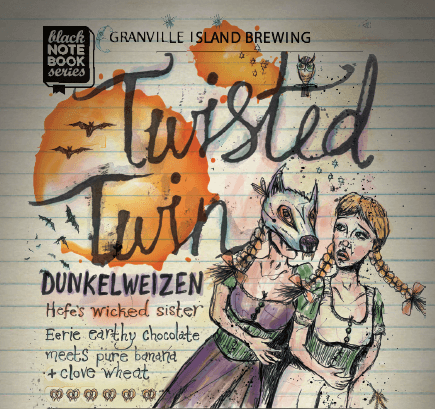 black
NOTE
BOOK
series
GRANVILLE ISLAND BREWING
Twisted
Twin
DUNKELWEIZEN
Hefe's wicked sister
Eerie earthy chocolate
meets pure banana
+ clove wheat